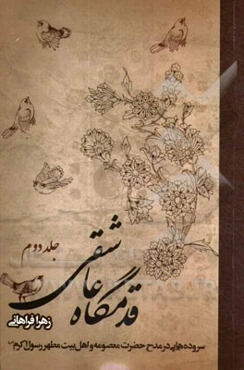 جلد دوم
قدمگاه عاشقی
زهرا فراهانی
سروده‌هایی در مدح حضرت معصومه و اهل بیت مطهر رسول اکرم